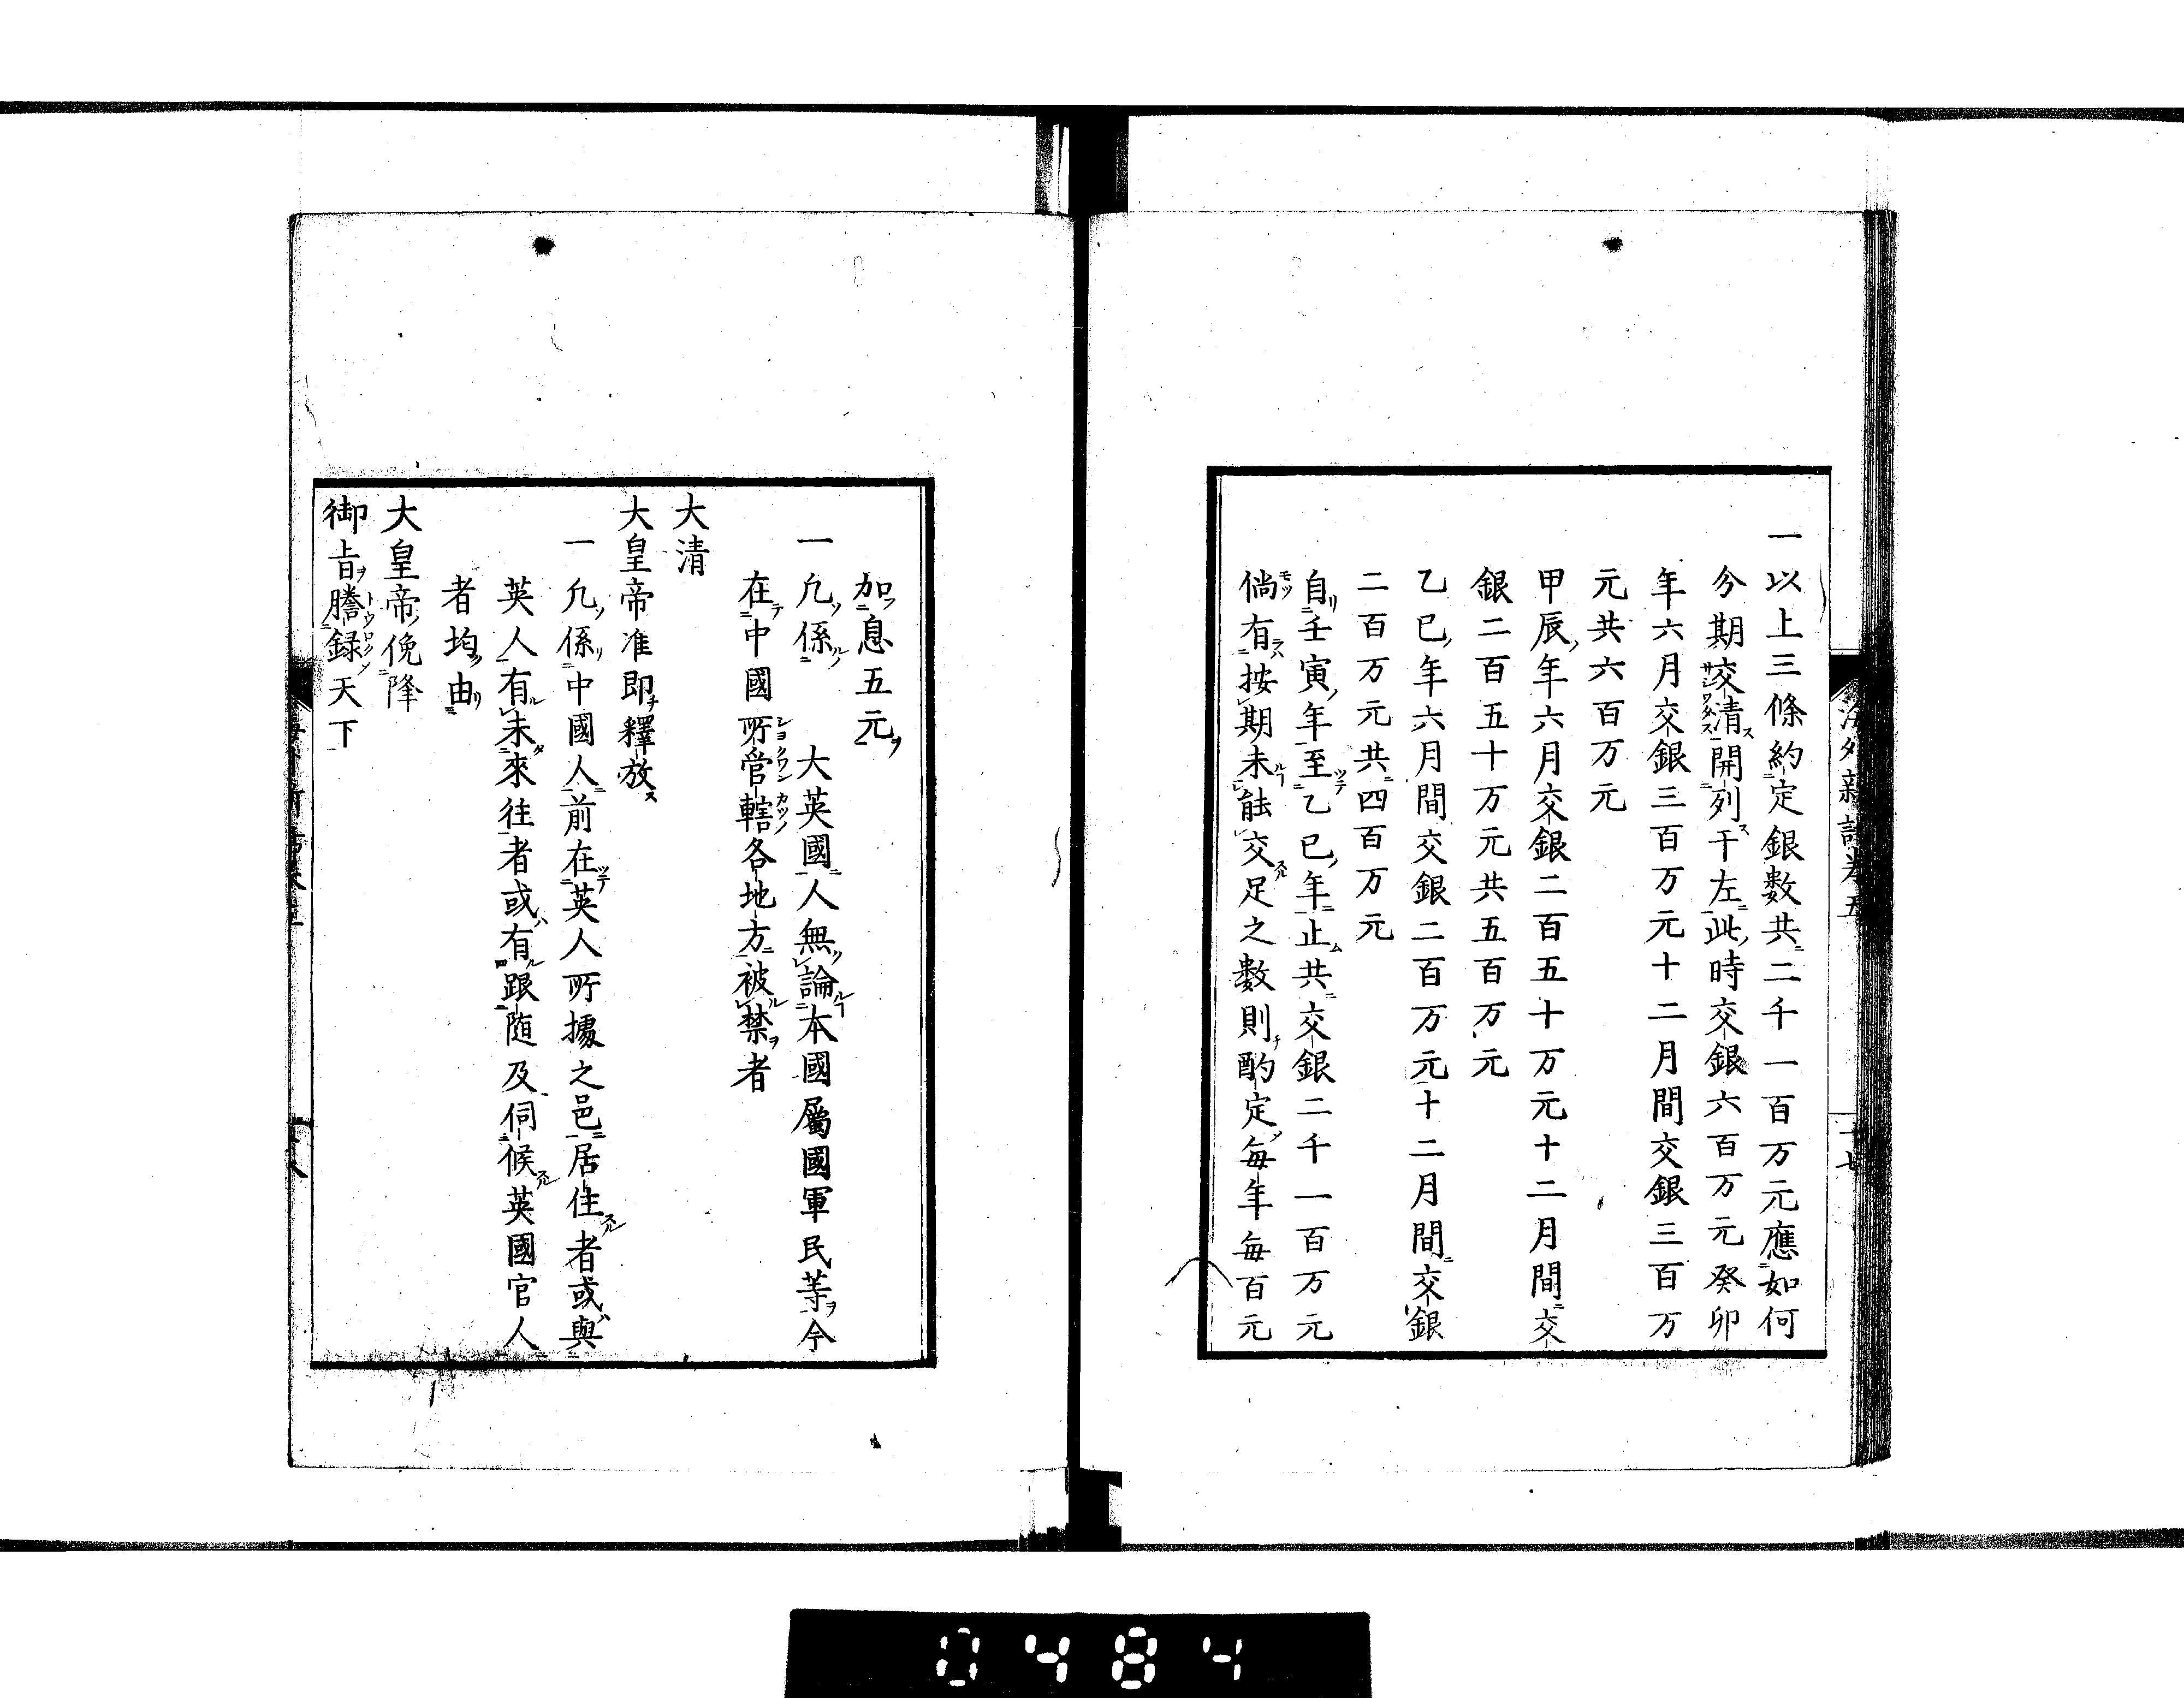 一以上三條約定銀数共二千一百万元應如何
分期交清開列于左此時交銀六百万元癸卯
年六月交銀三百万元十二月間交銀三百万
元共六百万元
甲辰年六月交銀二百五十万元十二月間交
銀二百五十万元共五百万元
乙巳年六月間交銀二百万元十二月間交銀
二百万元共四百万元
自壬寅年至乙巳年止共交銀二千一百万元
倘有按期未能交足之数則酌定毎年毎百元
加息五元
一凡係大英國人無論本國屬國軍民等今
在中國所管轄各地方被禁者
大清
大皇帝准即釋放
一凡係中國人前在英人所據之邑居住者或與
英人有未來往者或有跟随及伺候英國官人
者均由
大皇帝俛降
御旨謄録天下
0484